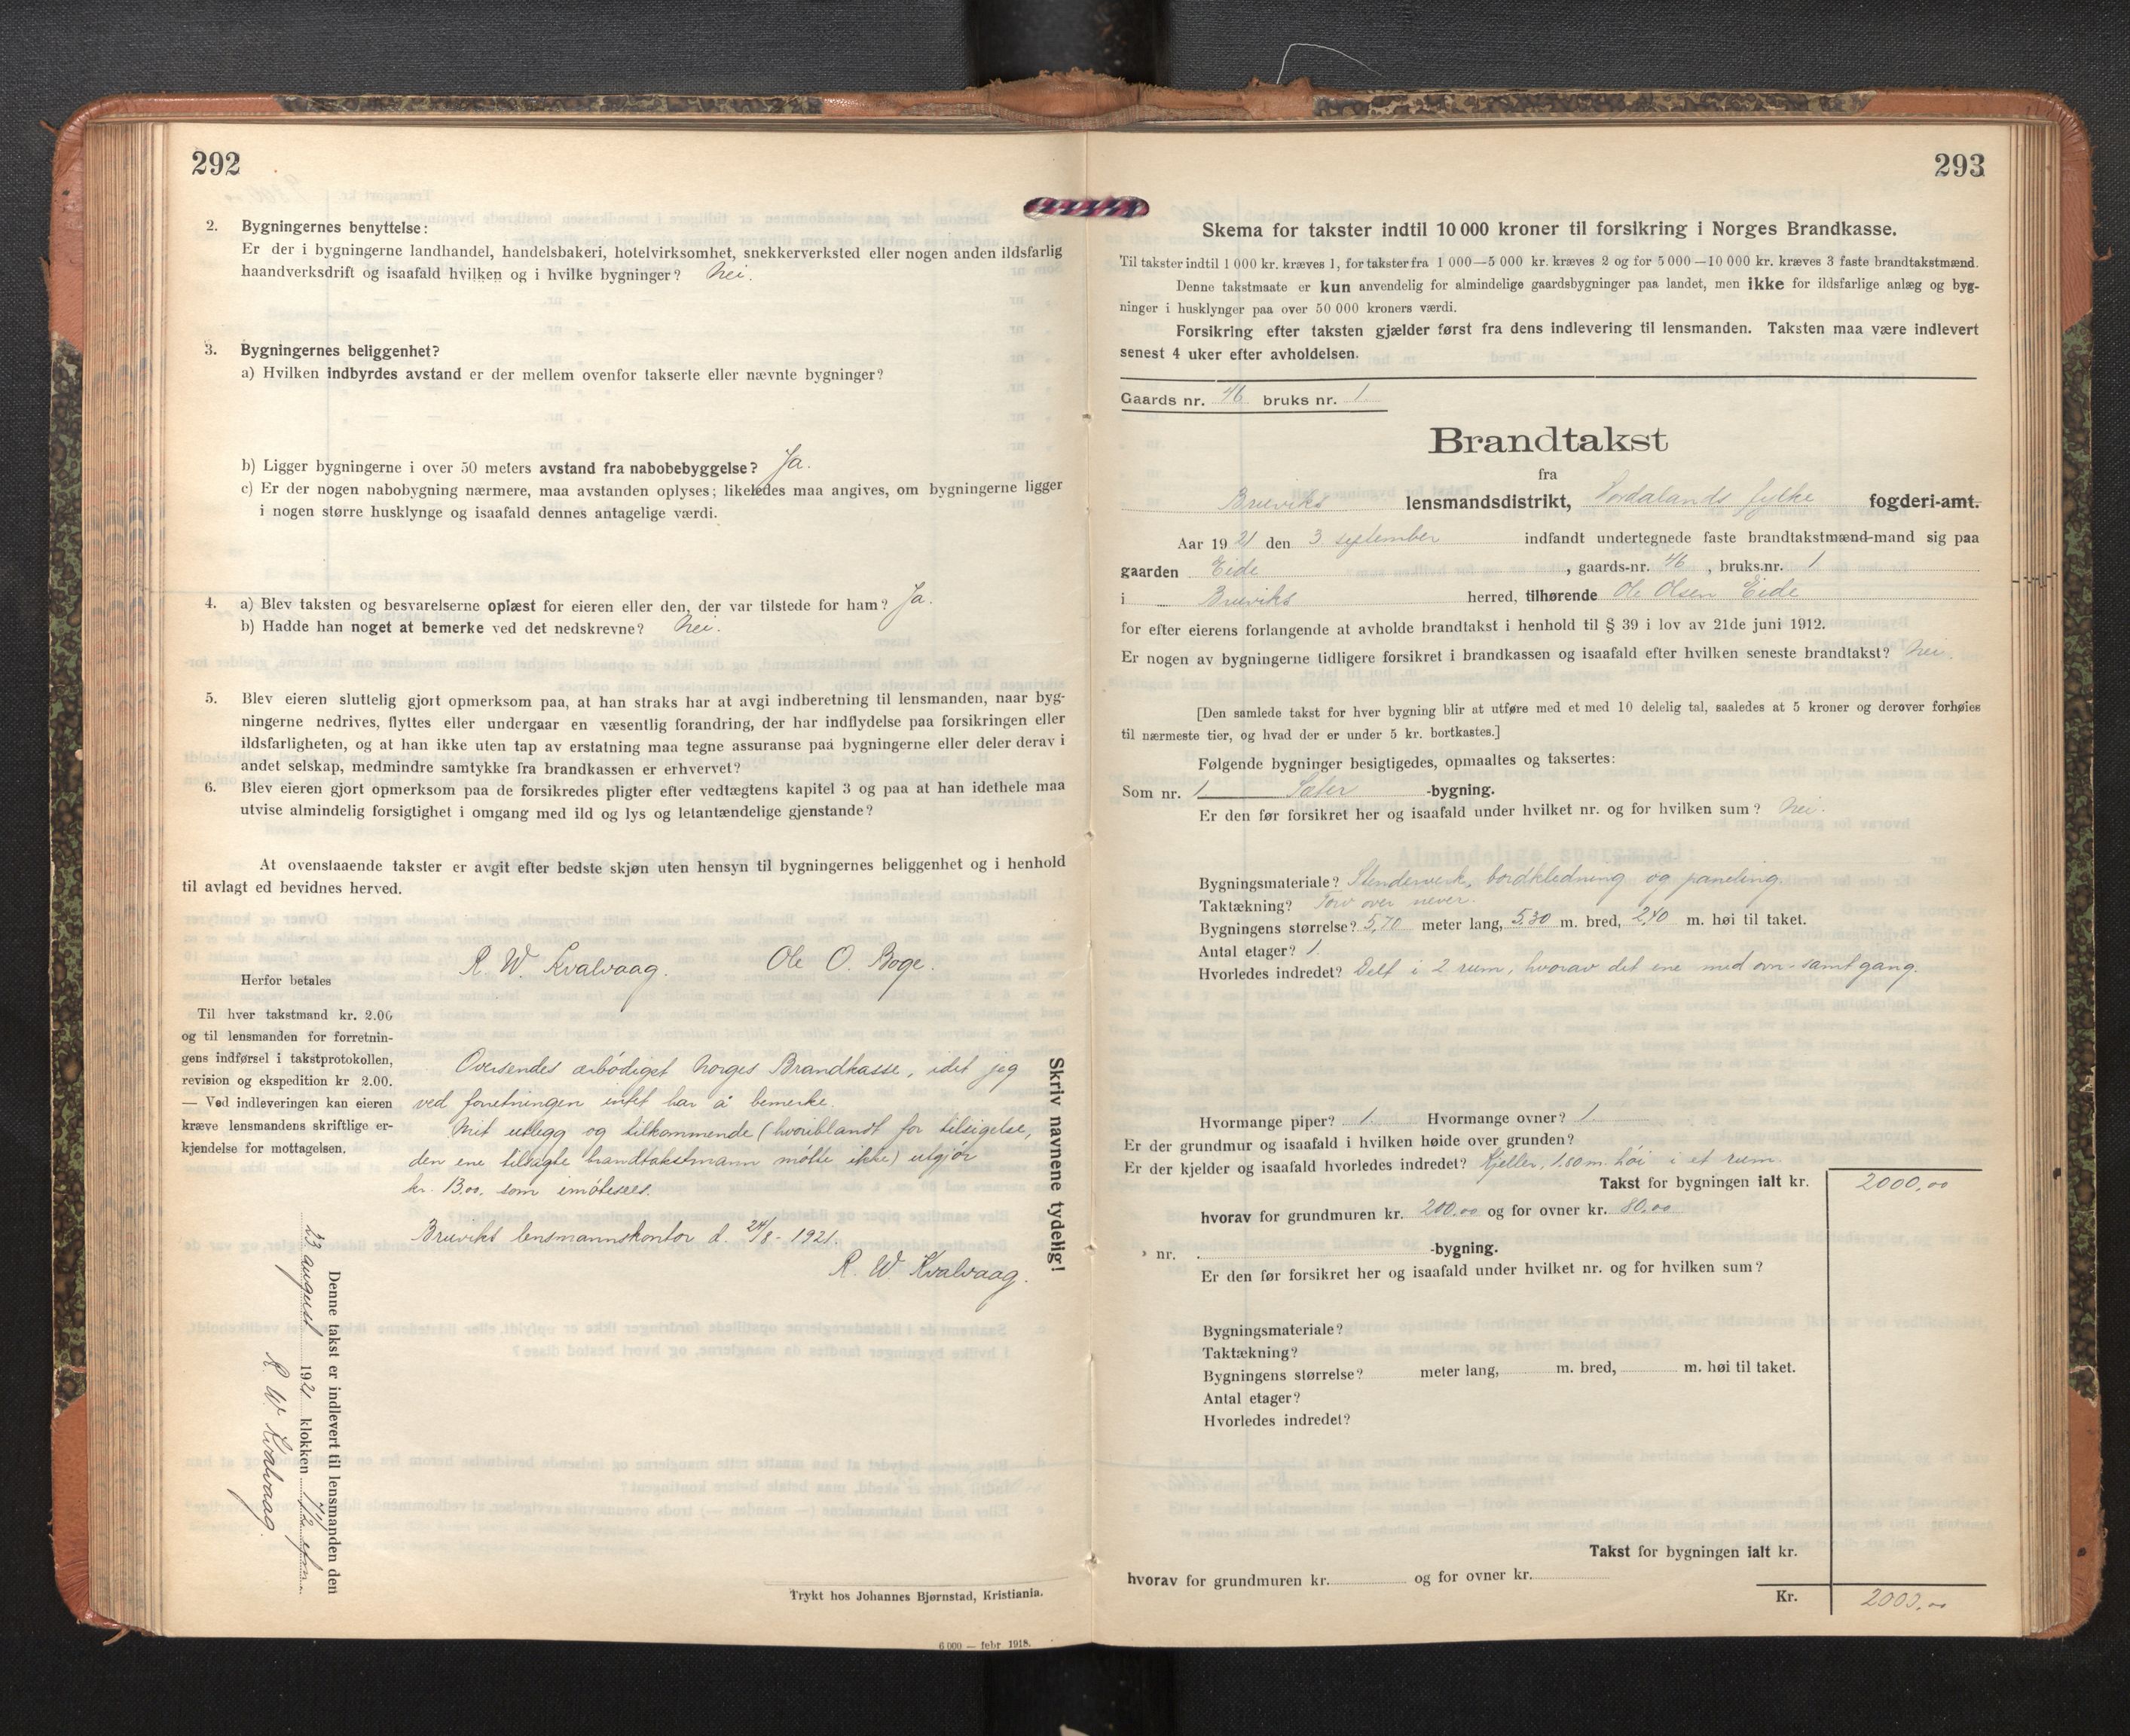 292
2. Bygningernes benyttelse:
Er der i bygningerne landhandel, handelsbakeri, hotelvirksomhet, snekkerverksted eller nogen anden ildsfarlig
haandverksdrift og isaafald hvilken og i hvilke bygninger? Nei.
3. Bygningernes beliggenhet?
a) Hvilken indbyrdes avstand er der mellem ovenfor takserte eller nævnte bygninger?
b) Ligger bygningerne i over 50 meters avstand fra nabobebyggelse? Ja.
c) Er der nogen nabobygning nærmere, maa avstanden oplyses; likeledes maa angives, om bygningerne ligger
i nogen større husklynge og isaafald dennes antagelige værdi.
4. a) Blev taksten og besvarelserne oplæst for eieren eller den, der var tilstede for ham? Ja.
b) Hadde han noget at bemerke ved det nedskrevne? Nei.
5. Blev eieren sluttelig gjort opmerksom paa, at han straks har at avgi indberetning til lensmanden, naar byg-
ningerne nedrives, flyttes eller undergaar en væsentlig forandring, der har indflydelse paa forsikringen eller
ildsfarligheten, og at han ikke uten tap av erstatning maa tegne assuranse paa bygningerne eller deler derav i
andet selskap, medmindre samtykke fra brandkassen er erhvervet?
6. Blev eieren gjort opmerksom paa de forsikredes pligter efter vedtægtens kapitel 3 og paa at han idethele maa
utvise almindelig forsigtighet i omgang med ild og lys og letantændelige gjenstande?
At ovenstaaende takster er avgit efter bedste skjøn uten hensyn til bygningernes beliggenhet og i henhold
til avlagt ed bevidnes herved.
R. W. Kvalvaag. Ole O. Boge.
Herfor betales
Til hver takstmand kr. 2.00
og til lensmanden for forretnin-
gens indførsel i takstprotokollen,
revision og ekspedition kr 2.00.
— Ved indleveringen kan eieren
kræve lensmandens skriftlige er-
kjendelse for mottagelsen.
Oversendes ærbødigst Norges Brandkasse, idet jeg
ved forretningen intet har å bemerke.
Mit utlegg og tilkommende (hvoriblandt for tilsigelse,
den ene tilsagte brandtakstmann møtte ikke) utgjør
kr. 13.00, som imøtesees.
Bruviks lensmannskontor d. 24/8 - 1921.
R. W. Kvalvaag.
Skriv navnene tydelig!
Denne takst er indlevert til lensmanden den
23 august 1921 klokken
R. W. Kvalvaag.
Trykt hos Johannes Bjørnstad, Kristiania.
6 000 — febr 1918.
293
Skema for takster indtil 10 000 kroner til forsikring i Norges Brandkasse.
Til takster indtil 1 000 kr. kræves 1, for takster fra 1 000—5 000 kr. kræves 2 og for 5 000—10 000 kr. kræves 3 faste brandtakstmænd.
Denne takstmaate er kun anvendelig for almindelige gaardsbygninger paa landet, men ikke for ildsfarlige anlæg og byg-
ninger i husklynger paa over 50 000 kroners værdi.
Forsikring efter taksten gjælder først fra dens indlevering til lensmanden. Taksten maa være indlevert
senest 4 uker efter avholdelsen.
Gaards nr. 46 bruks nr. 1
Brandtakst
fra
Bruviks lensmandsdistrikt, Hordalands fylke fogderi-amt.
Aar 1921 den 3. september indfandt undertegnede faste brandtakstmænd-mand sig paa
gaarden Eide, gaards-nr. 46, bruks.nr. 1
i Bruviks herred, tilhørende Ole Olsen Eide
for efter eierens forlangende at avholde brandtakst i henhold til § 39 i lov av 21de juni 1912.
Er nogen av bygningerne tidligere forsikret i brandkassen og isaafald efter hvilken seneste brandtakst? Nei.
[Den samlede takst for hver bygning blir at utføre med et med 10 delelig tal, saaledes at 5 kroner og derover forhøies
til nærmeste tier, og hvad der er under 5 kr. bortkastes.]
Følgende bygninger besigtigedes, opmaaltes og taksertes:
Som nr. 1 Sæter -bygning.
Er den før forsikret her og isaafald under hvilket nr. og for hvilken sum? Nei.
Bygningsmateriale? Stenderverk, bordkledning og paneling.
Taktækning? Torv over never.
Bygningens størrelse? 5,70 meter lang, 5.30 m. bred, 2,40 m. høi til taket.
Antal etager? 1.
Hvorledes indredet? Delt i 2 rum, hvorav det ene med ovn - samt gang.
Hvormange piper? 1. Hvormange ovner? 1
Er der grundmur og isaafald i hvilken høide over grunden?
Er der kjelder og isaafald hvorledes indredet? Kjeller, 1.80 m. høi i et rum.
Takst for bygningen ialt kr. 2000,00
hvorav for grundmuren kr. 200.00 og for ovner kr. 80.00
» nr. -bygning.
Er den før forsikret her og isaafald under hvilket nr. og for hvilken sum?
Bygningsmateriale?
Taktækning?
Bygningens størrelse? meter lang, m. bred, m. høi til taket.
Antal etager?
Hvorledes indredet?
Takst for bygningen ialt kr.
hvorav for grundmuren kr. og for ovner kr.
Kr. 2000,00